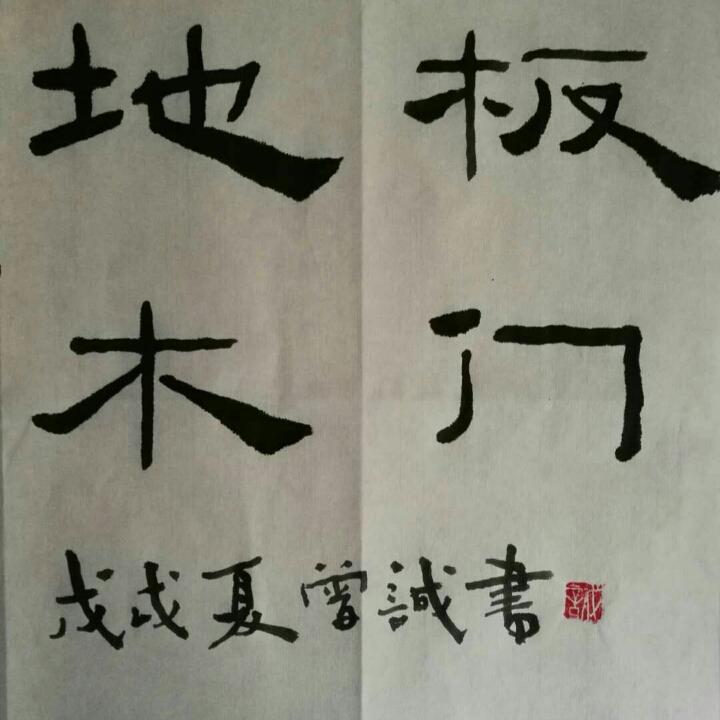 地板
木门
戊戌夏曾誠書
誠